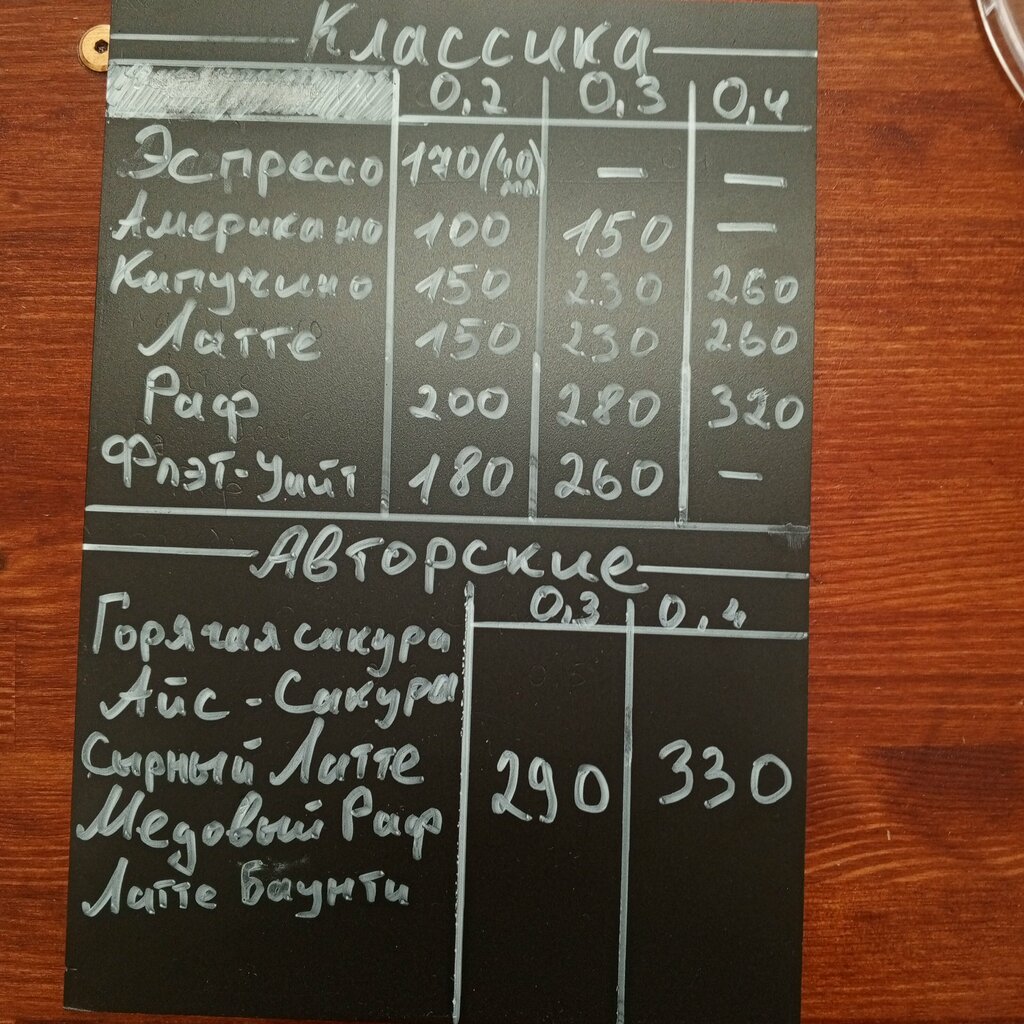 Классика
0,2 0,3 0,4
Эспрессо 170(40 мл) — —
Американо 100 150 —
Капучино 150 230 260
Латте 150 230 260
Раф 200 280 320
Флэт-Уайт 180 260 —
Авторские
0,3 0,4
Горячая сакура
Айс-Сакура
Сырный Латте 290 330
Медовый Раф
Латте Баунти